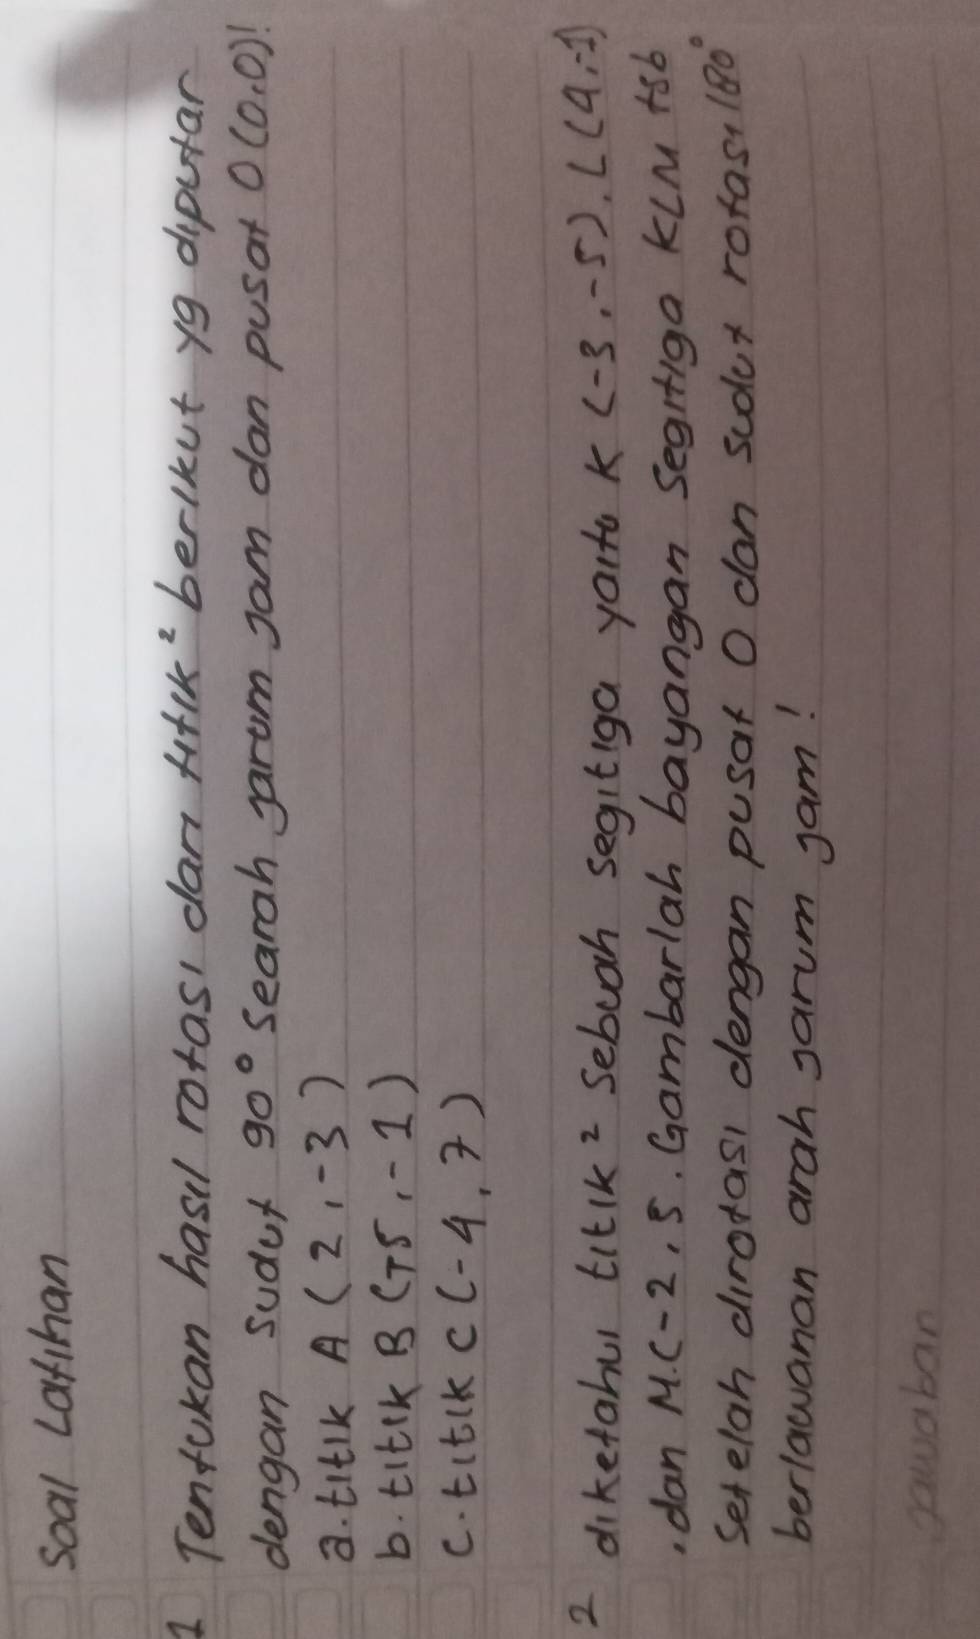 Soal Latihan
1 Tentukan hasil rotasi dari titik² berikut yg diputar
dengan sudut 90° searah jarum jam dan pusat O (0,0)!
a. titik A (2,-3)
b. titik B (-5,-1)
c. titik C (-4,7)
2 diketahui titik² sebuah segitiga yaitu K (-3,-5), L (4,-1)
, dan M.(-2,5. Gambarlah bayangan segitiga KLM tsb
setelah dirotasi dengan pusat O dan sudut rotasi 180°
berlawanan arah jarum jam!
jawaban